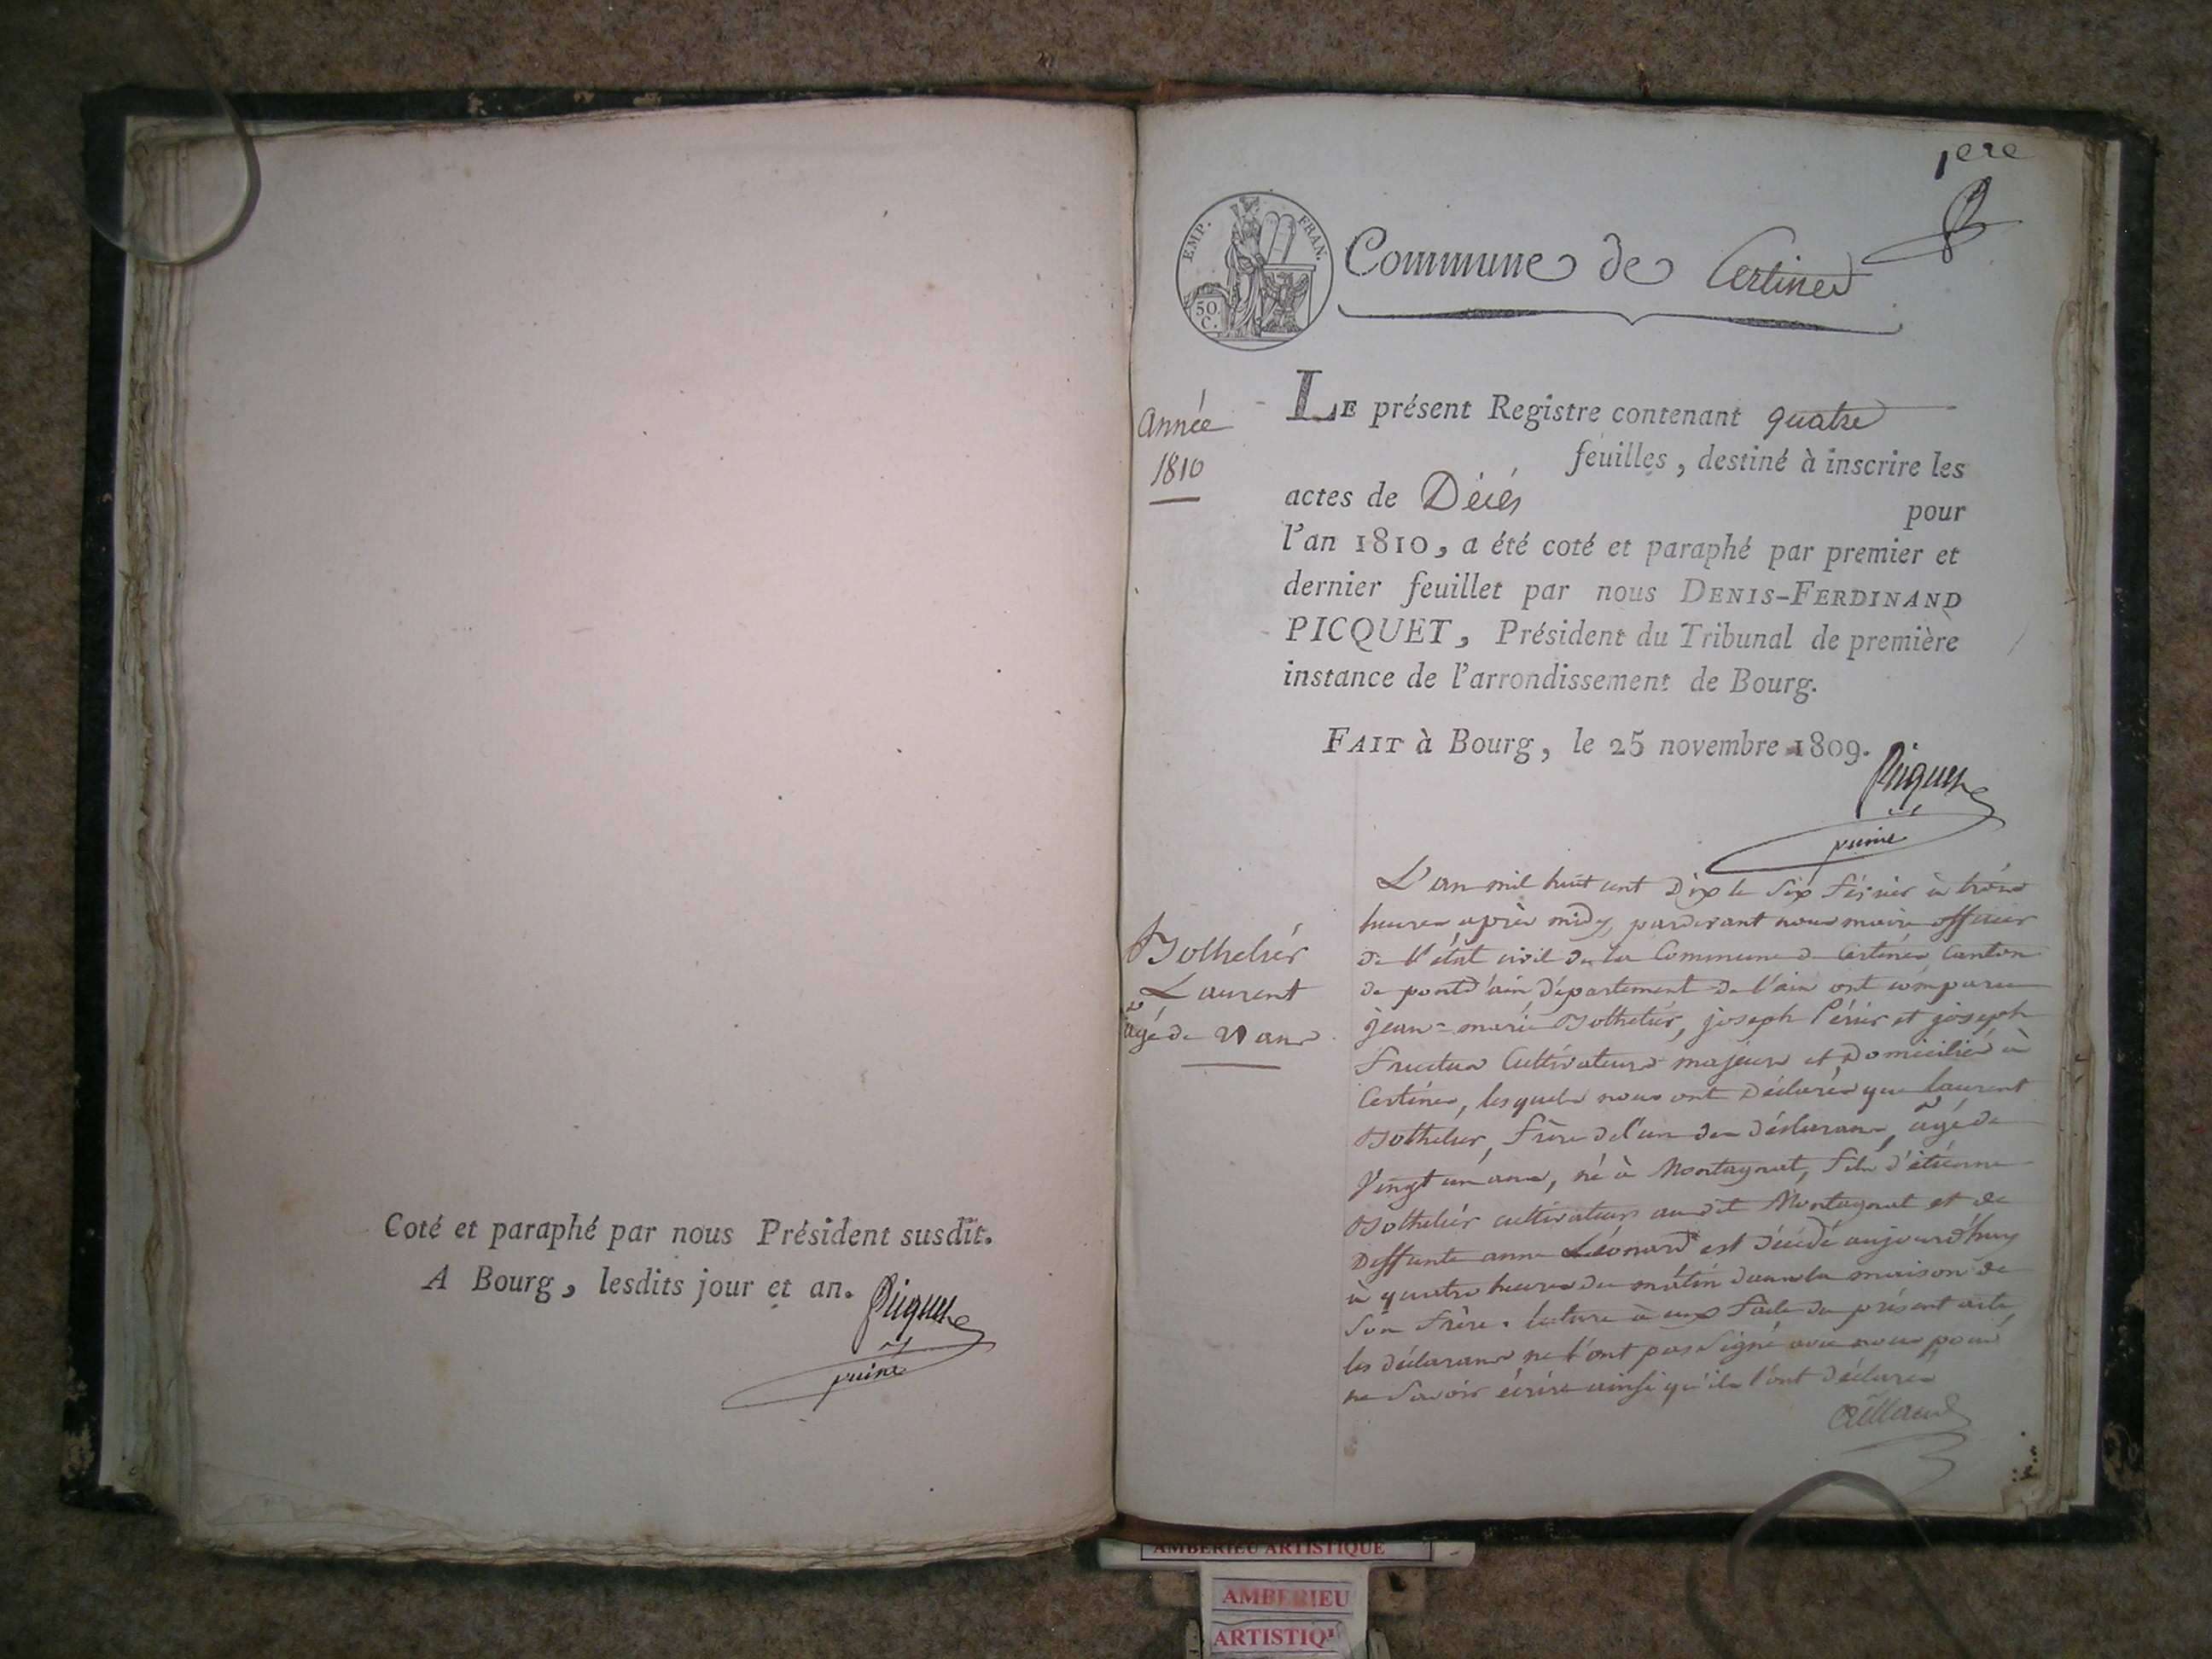 Coté et paraphé par nous Président susdit.
A Bourg, lesdits jour et an.
Picquet
puiné
1ere
EMP. FRAN.
50 C.
Commune de Certines
Année
1810
LE présent Registre contenant quatre
feuilles, destiné à inscrire les
actes de Décès pour
l'an 1810, a été coté et paraphé par premier et
dernier feuillet par nous DENIS-FERDINAND
PICQUET, Président du Tribunal de première
instance de l'arrondissement de Bourg.
FAIT à Bourg, le 25 novembre 1809.
Picquet
puiné
Bothelier
Laurent
agé de 21 ans
L'an mil huit cent Dix le Six février à trois
heures après midy, pardevant nous maire officier
de l'état civil de la Commune de Certines Canton
de pontd'ain département de l'ain ont comparu
jean=marie Bothelier, joseph Périer et joseph
Cultivateurs majeurs et Domiciliés à
Certines, lesquels nous ont Déclarés que laurent
Bothelier, frère de l'un des déclarans, agé de
Vingt un ans, né à Montagnat, fils d'étienne
Bothelier cultivateur audit Montagnat et de
Deffunte anne Léonard est décédé aujourd'huy
à quatre heures du matin dans la maison de
Son frère. lecture à eux faite du présent acte
les déclarans ne l'ont pas Signé avec nous pour
ne Savoir écrire ainsi qu'ils l'ont déclarés
AMBERIEU ARTISTIQUE
AMBERIEU
ARTISTIQU